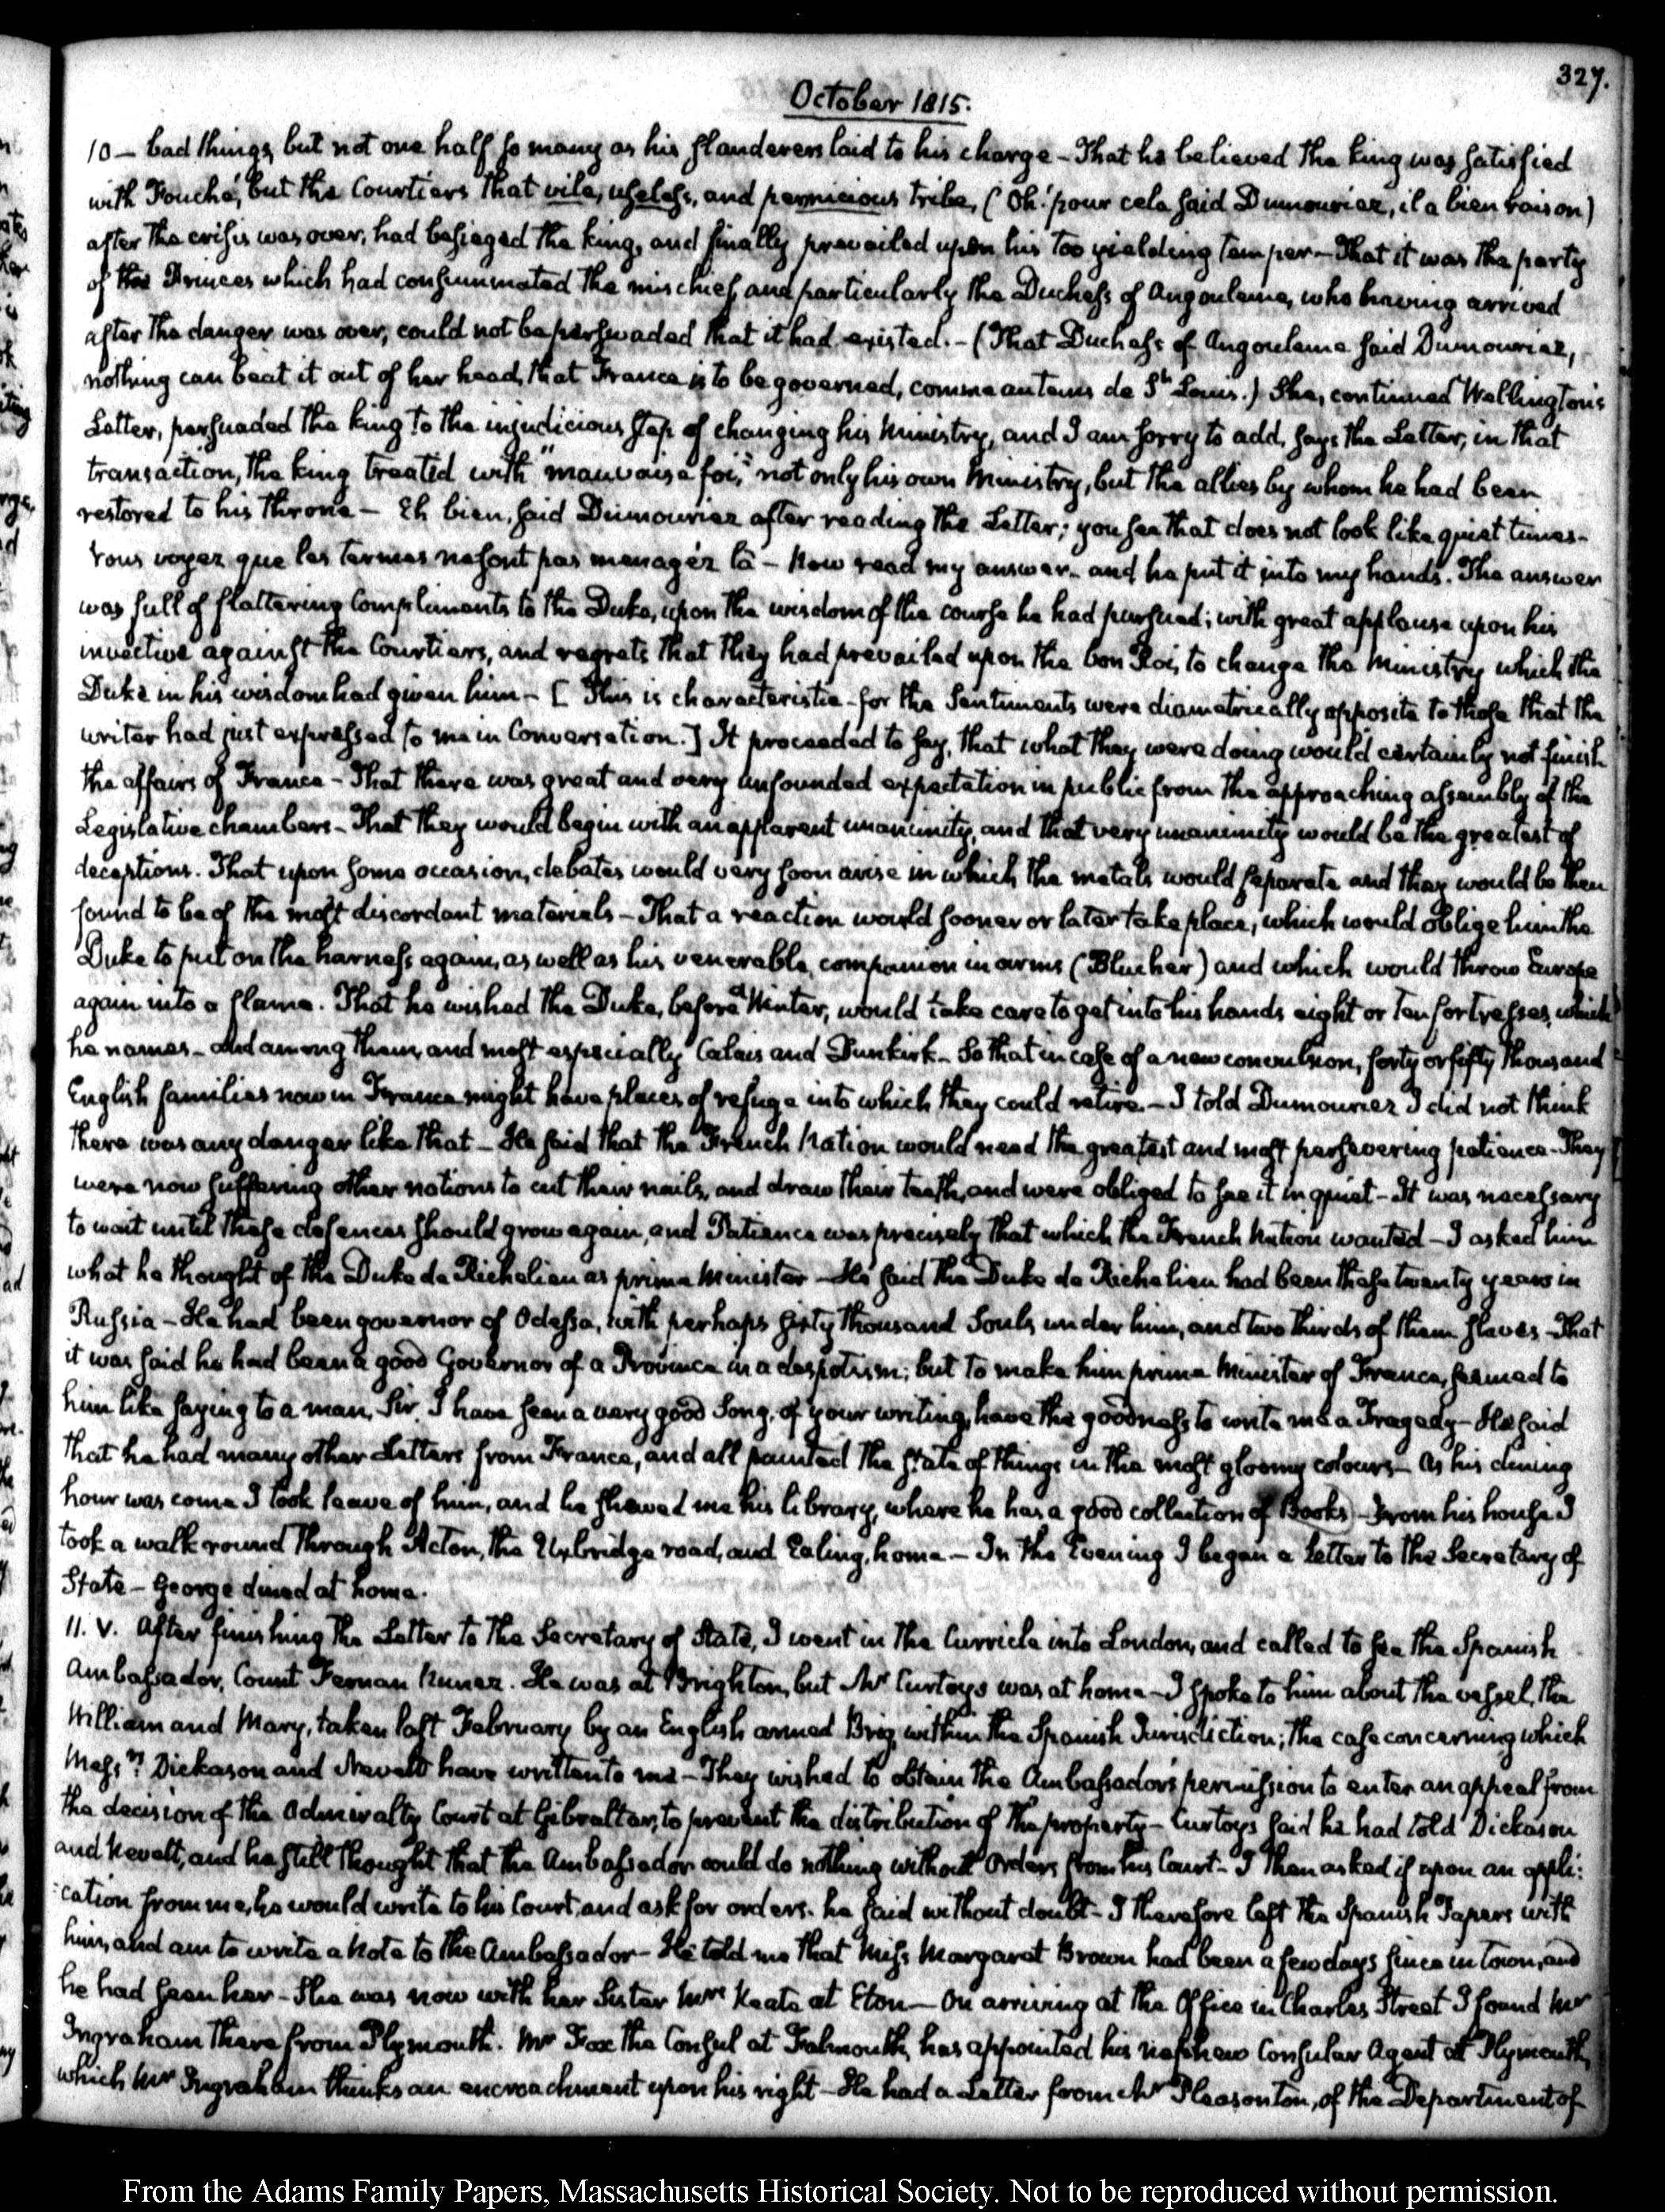 327.
October 1815.
10 — bad things, but not one half so many as his slanderers laid to his charge – That he believed the king was satisfied
with Fouché, but the Courtiers that vile, useless, and pernicious tribe, (Oh! pour cela said Dumouriez, il a bien raison)
after the crisis was over, had besieged the king, and finally prevailed upon his too yielding temper — That it was the party
of the Princes which had consummated the mischief, and particularly the Duchess of Angouleme, who having arrived
after the danger was over, could not be persuaded that it had existed. – (That Duchess of Angouleme said Dumouriez,
nothing can beat it out of her head, that France is to be governed, comme au tems de St. Louis.) She, continued Wellington's
Letter, persuaded the king to the injudicious step of changing his Ministry, and I am sorry to add, says the Letter, in that
transaction, the king treated with "mauvaise foi," not only his own Ministry, but the allies by whom he had been
restored to his throne — Eh bien, said Dumouriez after reading the Letter; you see that does not look like quiet times –
Vous voyez que les termes ne sont pas menagéz là – Now read my answer – and he put it into my hands. The answer
was full of flattering Compliments to the Duke, upon the wisdom of the course he had pursued; with great applause upon his
invective against the Courtiers, and regrets that they had prevailed upon the bon Roi, to change the Ministry which the
Duke in his wisdom had given him – [This is characteristic – for the Sentiments were diametrically opposite to those that the
writer had just expressed to me in Conversation.] It proceeded to say, that what they were doing would certainly not finish
the affairs of France – That there was great and very unfounded expectation in public from the approaching assembly of the
Legislative chambers – That they would begin with an apparent unanimity, and that very unanimity would be the greatest of
deceptions. That upon some occasion, debates would very soon arise in which the metals would separate and they would be then
found to be of the most discordant materials – That a reaction would sooner or later take place, which would oblige him the
Duke to put on the harness again, as well as his venerable companion in arms (Blucher) and which would throw Europe
again into a flame. That he wished the Duke, before Winter, would take care to get into his hands eight or ten fortresses, which
he names – and among them, and most especially Calais and Dunkirk – So that in case of a new convulsion, forty or fifty thousand
English families now in France might have places of refuge into which they could retire. – I told Dumouriez I did not think
there was any danger like that – He said that the French Nation would need the greatest and most persevering patience – They
were now suffering other nations to cut their nails, and draw their teeth, and were obliged to see it in quiet – It was necessary
to wait until these defences should grow again, and Patience was precisely that which the French Nation wanted – I asked him
what he thought of the Duke de Richelieu as prime Minister – He said the Duke de Richelieu had been these twenty years in
Russia – He had been governor of Odessa, with perhaps sixty thousand Souls under him, and two thirds of them slaves – That
it was said he had been a good Governor of a Province in a despotism; but to make him prime Minister of France, seemed to
him like saying to a man, Sir, I have seen a very good Song, of your writing, have the goodness to write me a Tragedy – He said
that he had many other Letters from France, and all painted the state of things in the most gloomy colours – As his dining
hour was come I took leave of him, and he shewed me his library, where he has a good collection of Books – From his house I
took a walk round through Acton, the Uxbridge road, and Ealing, home – In the Evening I began a Letter to the Secretary of
State – George dined at home.
11. V. After finishing the Letter to the Secretary of State, I went in the Curricle into London, and called to see the Spanish
Ambassador, Count Fernan Nunez. He was at Brighton, but Mr Curtoys was at home – I spoke to him about the vessel, the
William and Mary, taken last February by an English armed Brig within the Spanish Jurisdiction; the case concerning which
Messrs. Dickason and Nevett have written to me – They wished to obtain the Ambassador's permission to enter an appeal from
the decision of the Admiralty Court at Gibraltar, to prevent the distribution of the property – Curtoys said he had told Dickason
and Nevett, and he still thought that the Ambassador could do nothing without Orders from his Court – I then asked if upon an appli:
:cation from me, he would write to his Court, and ask for orders. he said without doubt – I therefore left the Spanish Papers with
him, and am to write a Note to the Ambassador – He told me that Miss Margaret Brown had been a few days since in town, and
he had seen her – She was now with her Sister Mrs Keate at Eton — On arriving at the Office in Charles Street I found Mr
Ingraham there from Plymouth. Mr Fox the Consul at Falmouth, has appointed his nephew Consular Agent at Plymouth,
which Mr Ingraham thinks an encroachment upon his right – He had a Letter from Mr Pleasonton, of the Department of
From the Adams Family Papers, Massachusetts Historical Society. Not to be reproduced without permission.